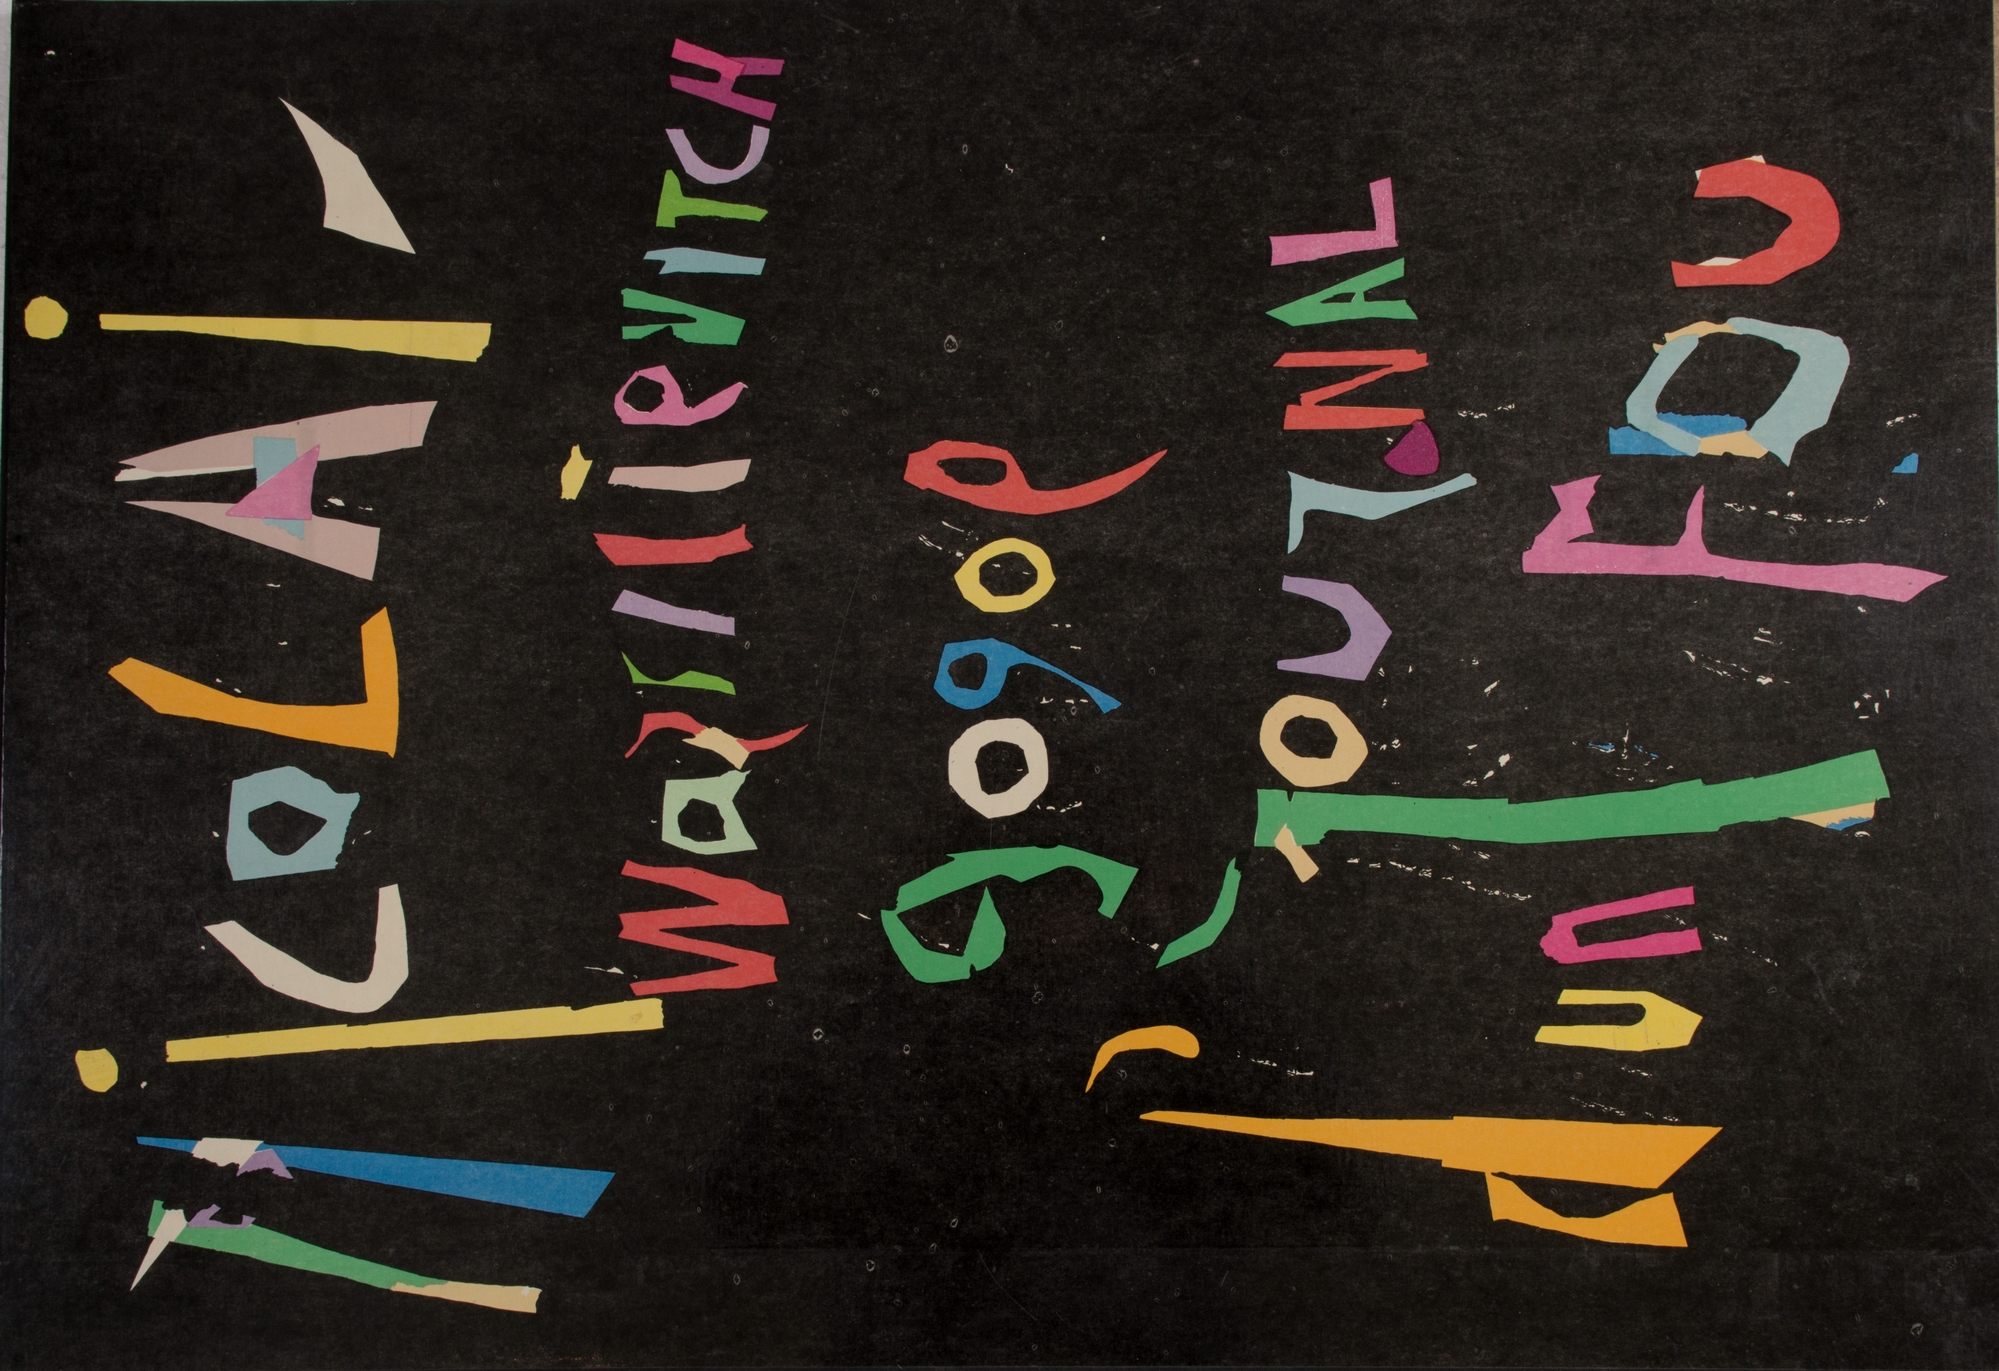 NiCOLAi
WassilieVITCH
gogol
JOUrNAL
d'un FOU